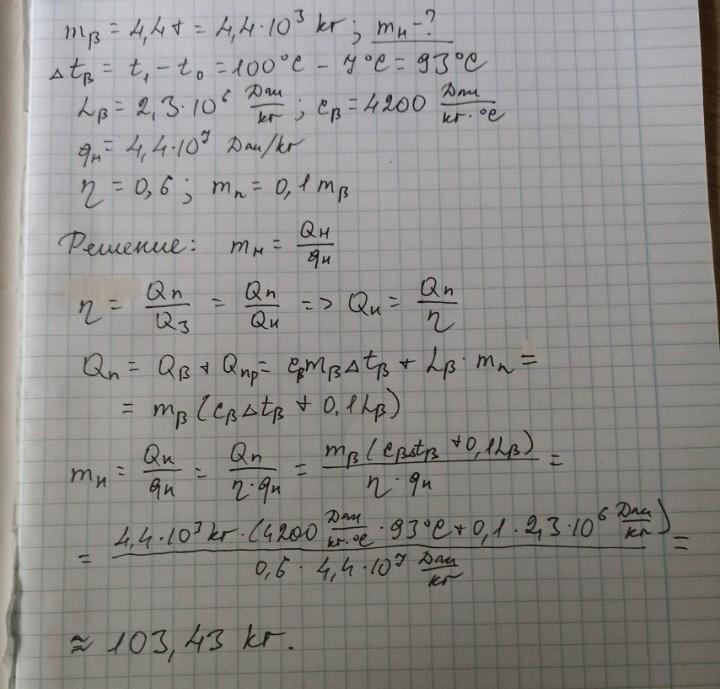 mв = 4,4 т = 4,4·10³ кг; mн - ?
Δtв = t₁ - t₀ = 100°С - 7°С = 93°С
Lв = 2,3·10⁶ Дж/кг; св = 4200 Дж/кг·°С
qн = 4,4·10⁷ Дж/кг
η = 0,6; mп = 0,1 mв
Решение: mн = Qн/qн
η = Qп/Qз = Qп/Qн => Qн = Qп/η
Qп = Qв + Qпр = свmвΔtв + Lв·mп =
= mв(свΔtв + 0,1Lв)
mн = Qн/qн = Qп/η·qн = mв(свΔtв + 0,1Lв)/η·qн =
= 4,4·10³кг·(4200 Дж/кг·°С·93°С + 0,1·2,3·10⁶ Дж/кг)/0,6·4,4·10⁷ Дж/кг =
≈ 103,43 кг.